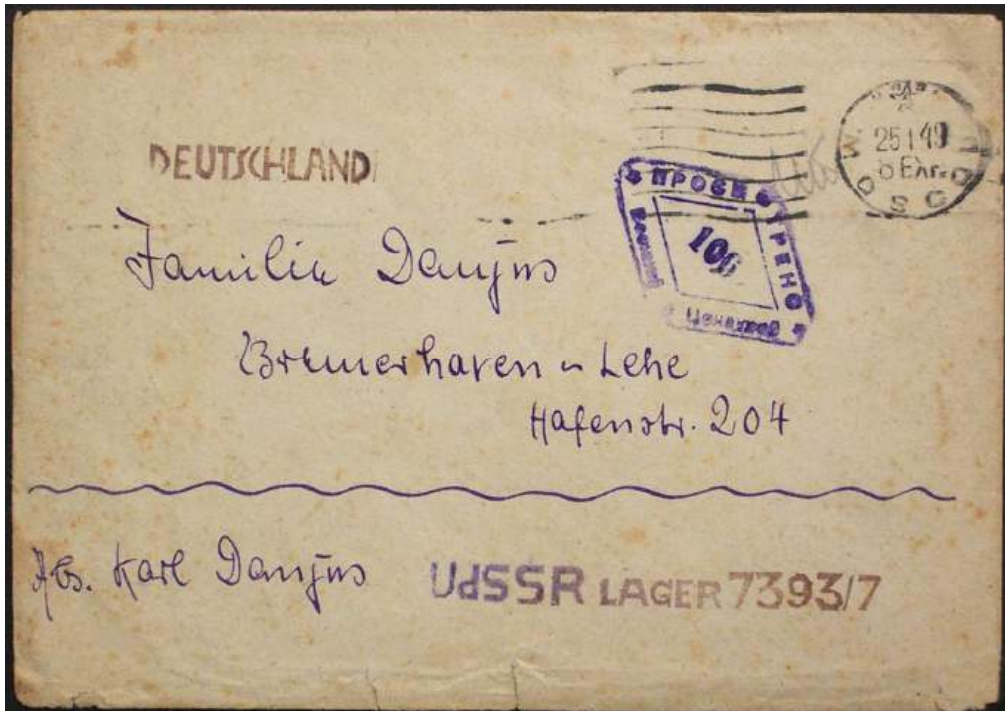 DEUTSCHLAND
MOSCOU
25 1 49
ПРОСМОТРЕНО
Военной
Цензурой
106
Familie Danjus
Bremerhaven - Lehe
Hafenstr. 204
Abs. Karl Danjus
UdSSR LAGER 7393/7